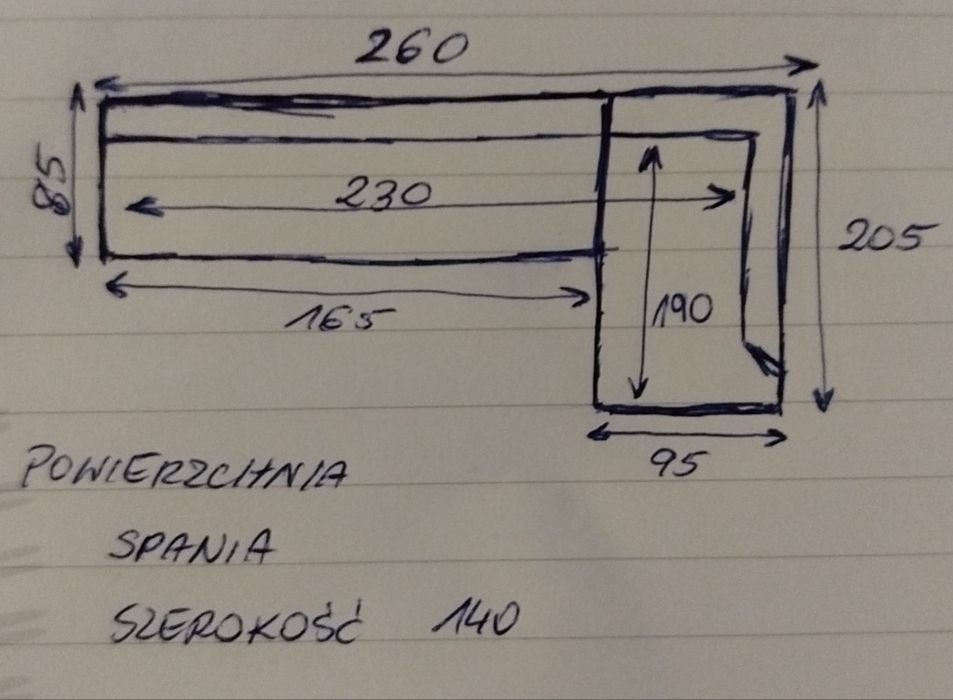 260
85
230
205
165
190
95
POWIERZCHNIA
SPANIA
SZEROKOŚĆ 140